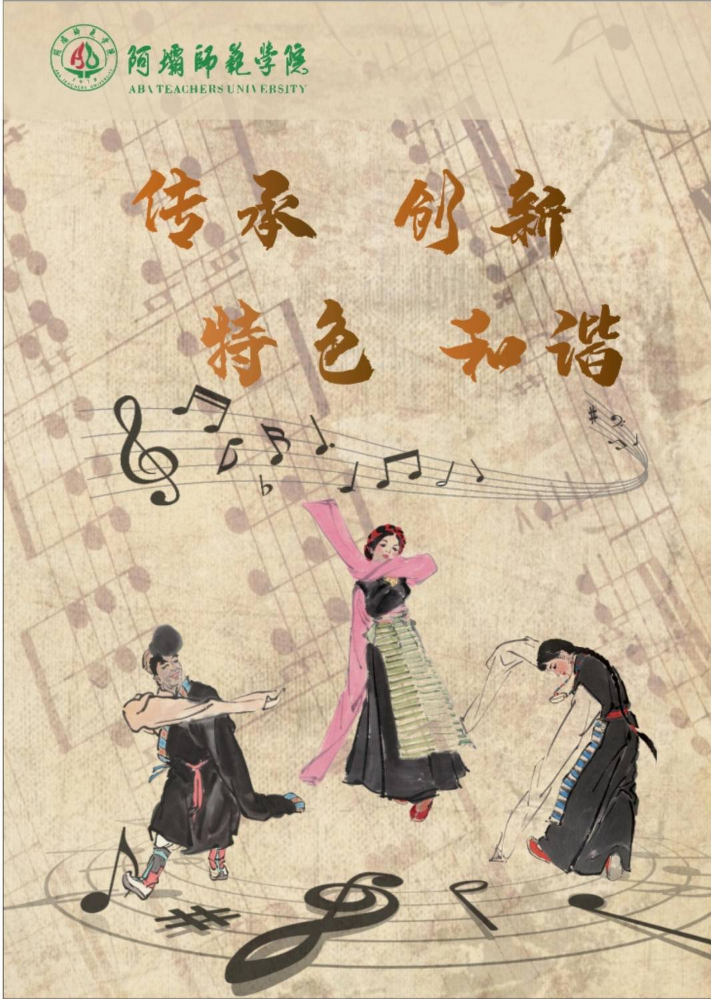 阿壩師範学院
ABA TEACHERS UNIVERSITY
传承 创新
特色 和谐